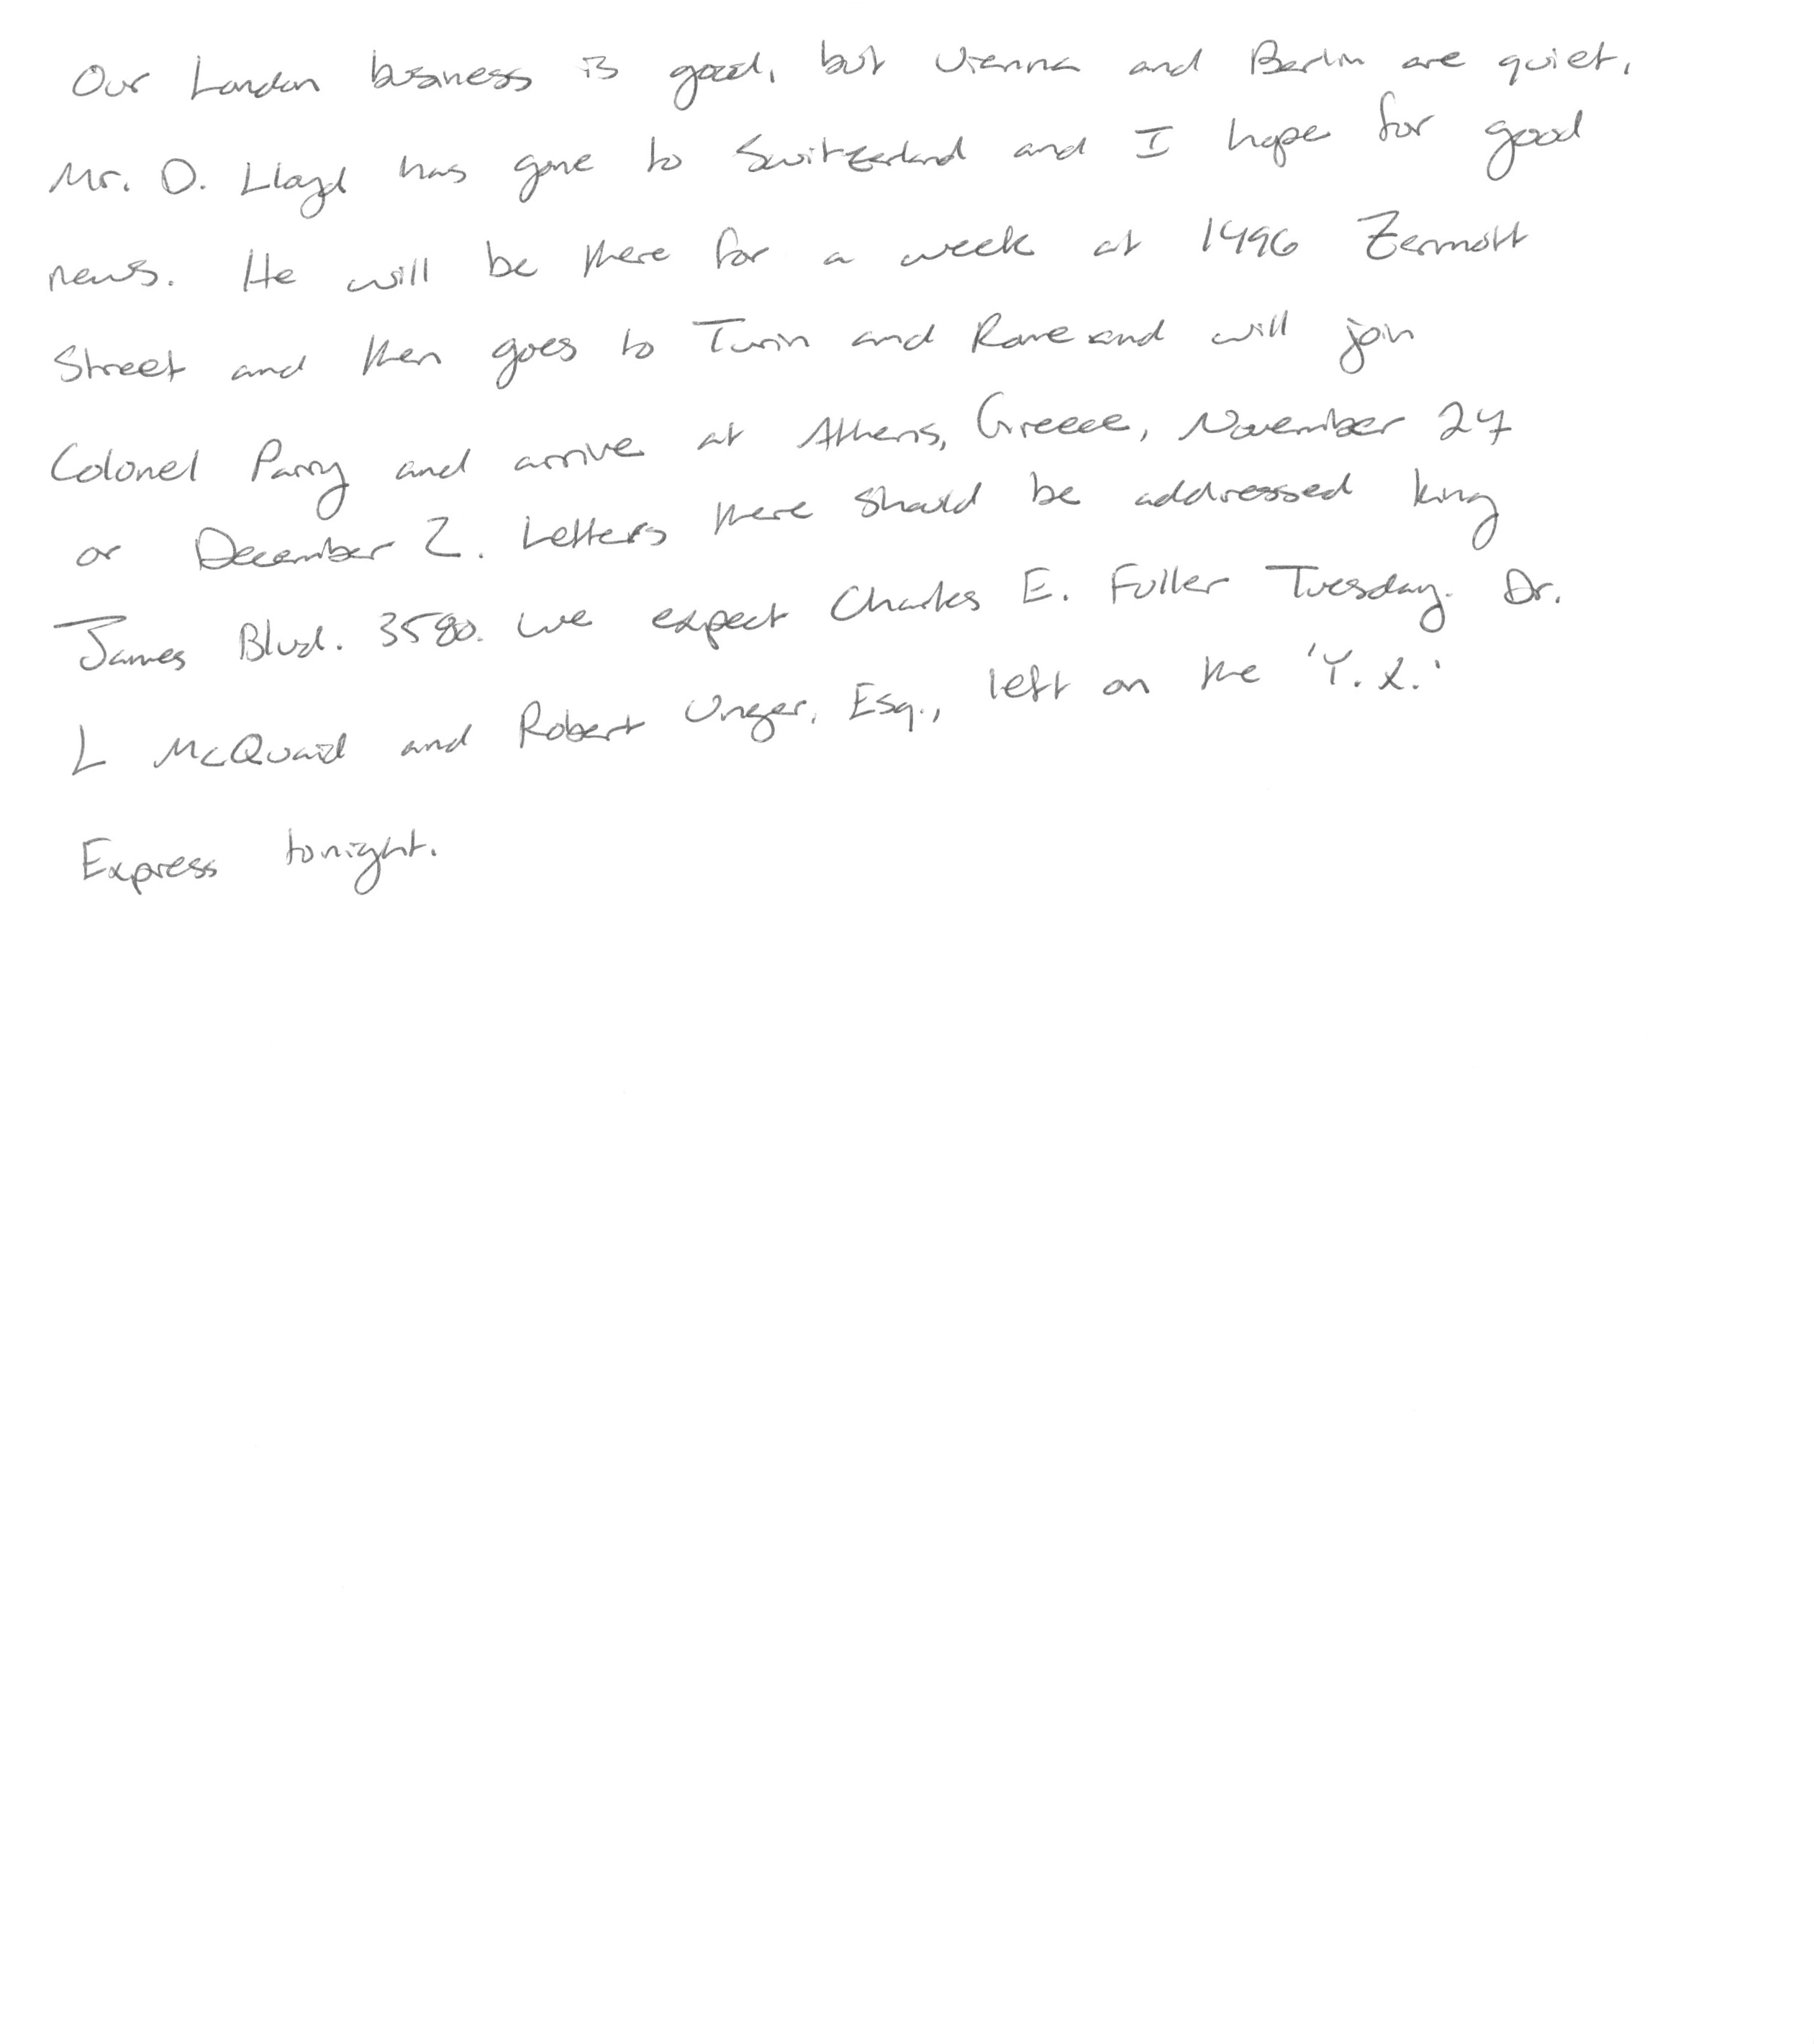 Our London business is good, but Vienna and Berlin are quiet.
Mr. D. Lloyd has gone to Switzerland and I hope for good
news. He will be there for a week at 1496 Zermott
Street and then goes to Turin and Rome and will join
Colonel Parry and arrive at Athens, Greece, November 27
or December 2. Letters there should be addressed King
James Blvd. 3580. We expect Charles E. Fuller Tuesday. Dr.
L McQuaid and Robert Unger, Esq., left on the 'Y.X.'
Express tonight.